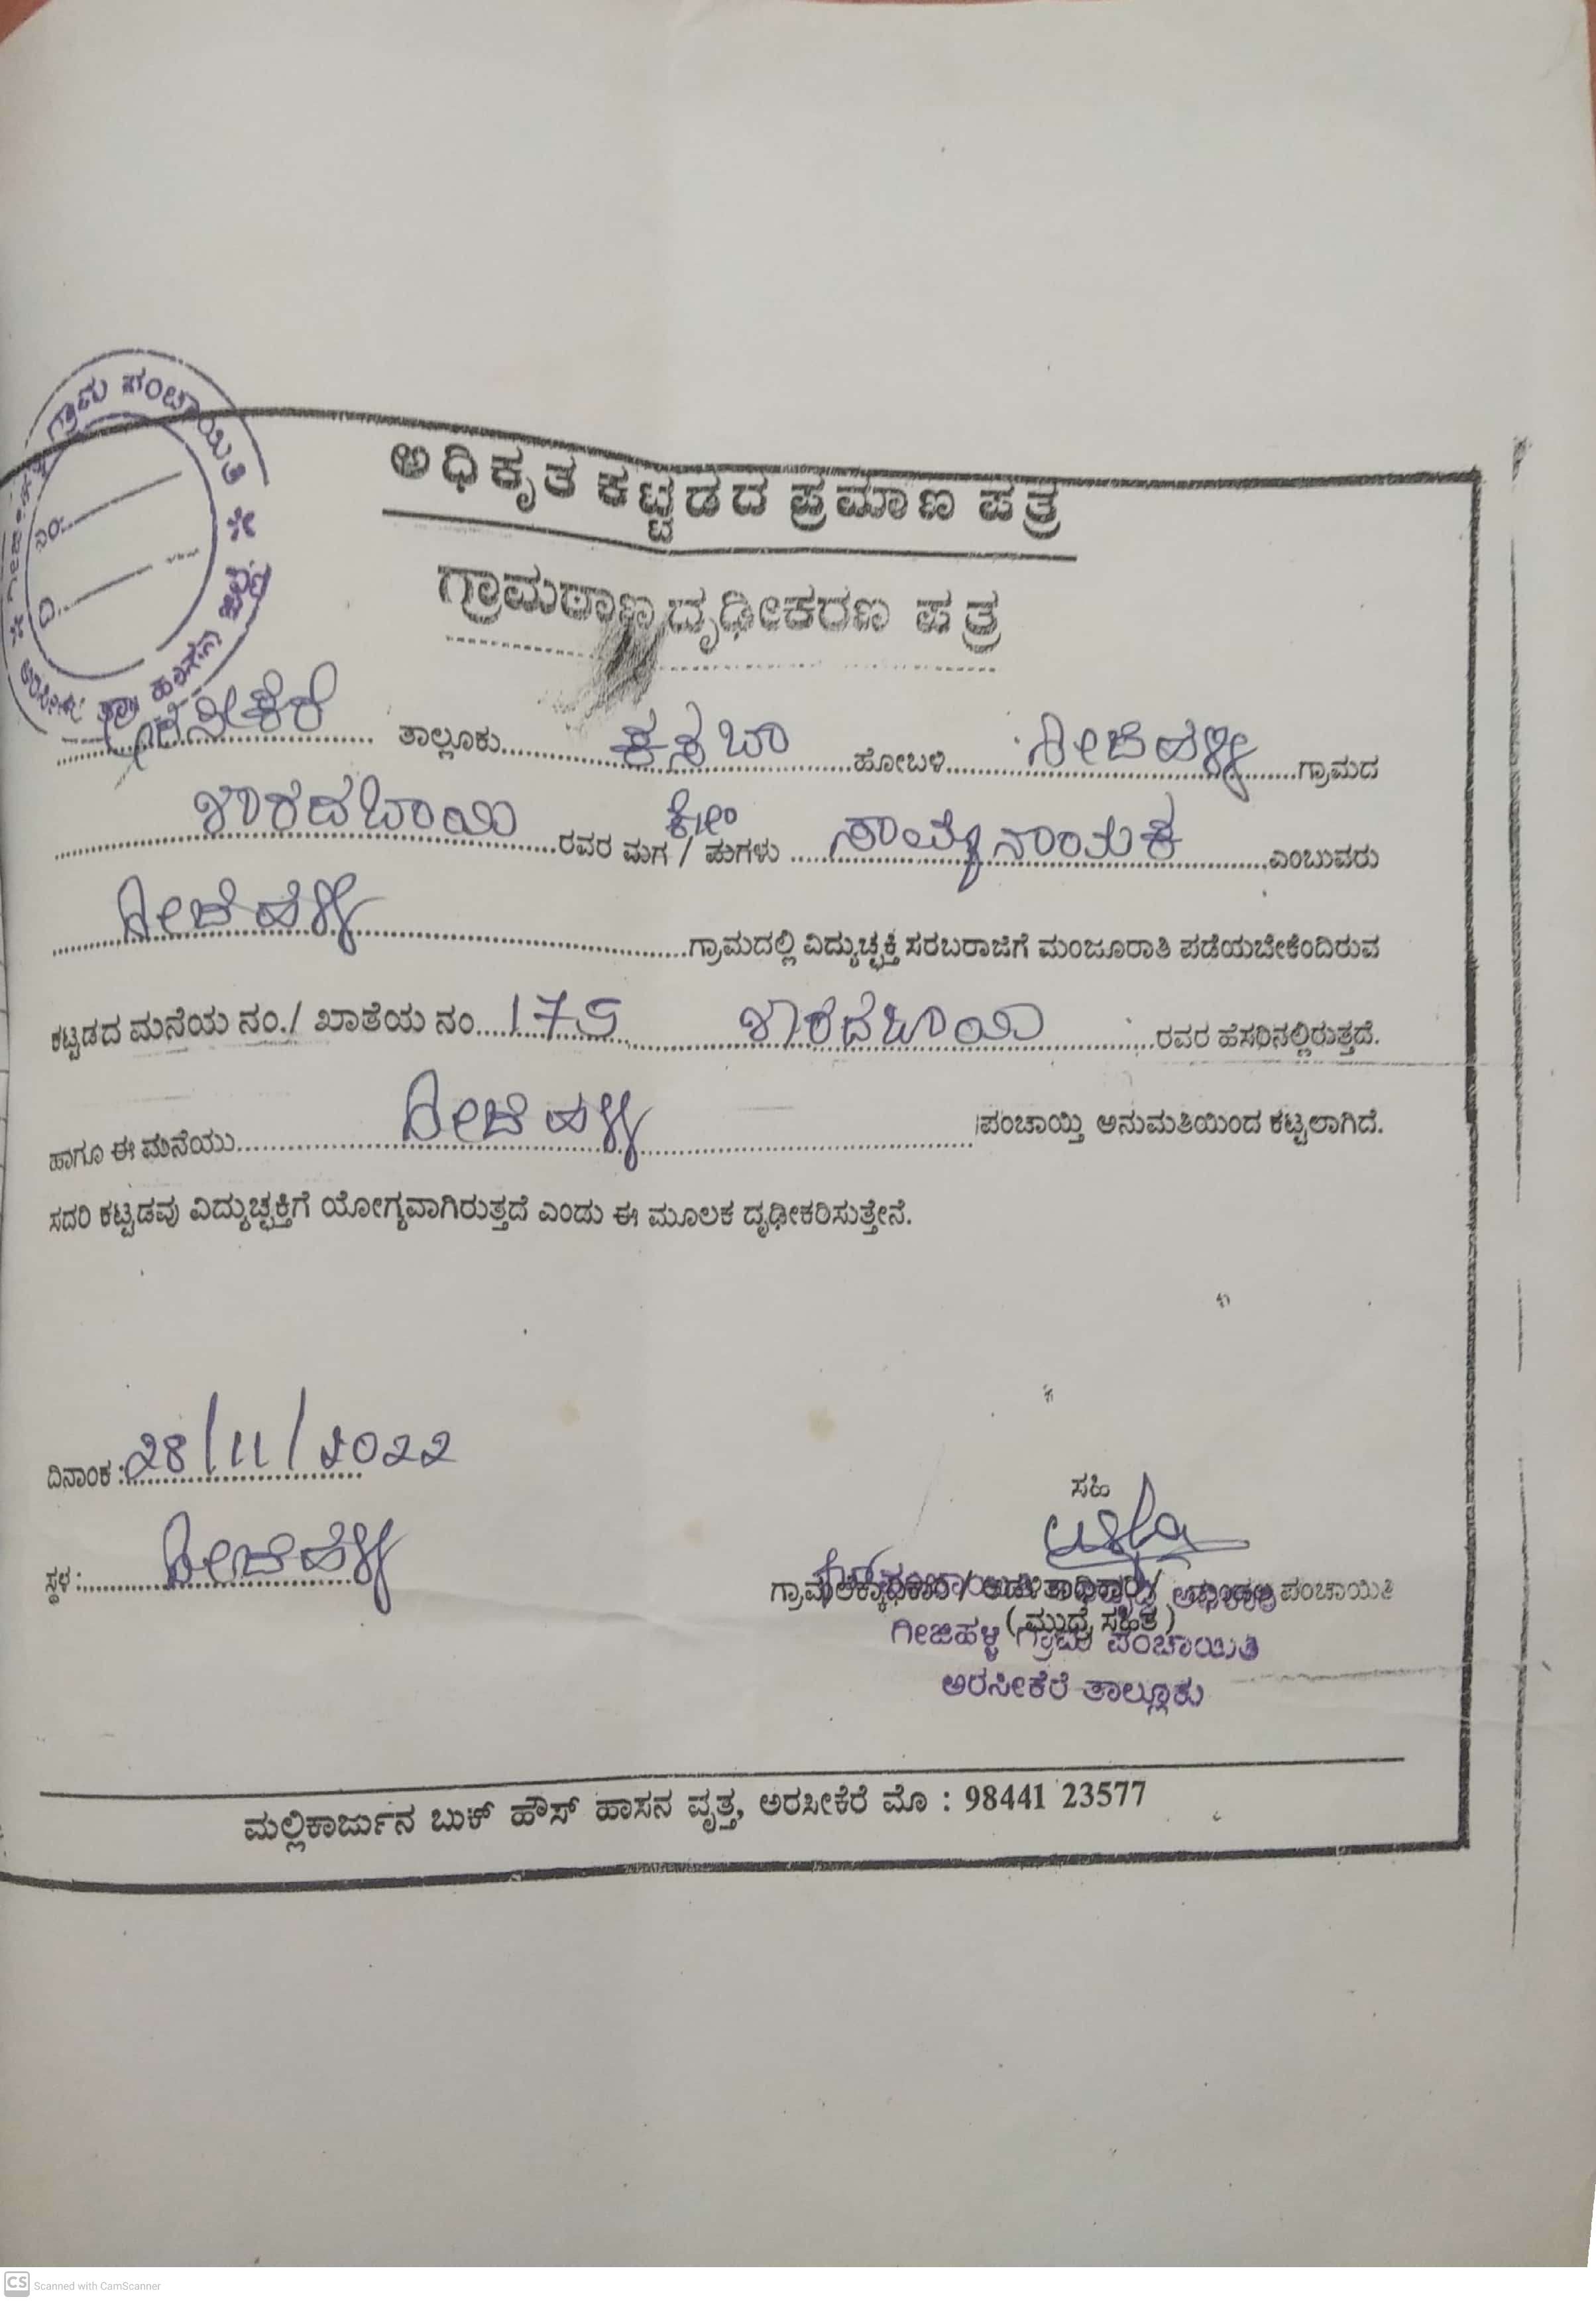 ಗ್ರಾಮ ಪಂಚಾಯಿತಿ
ನಂ
ದಿ
ಅಧಿಕೃತ ಕಟ್ಟಡದ ಪ್ರಮಾಣ ಪತ್ರ
ಗ್ರಾಮಠಾಣ ದೃಢೀಕರಣ ಪತ್ರ
ತಾಲ್ಲೂಕು ಕಸಬಾ ಹೋಬಳಿ ಗೀಜಿಹಳ್ಳಿ ಗ್ರಾಮದ
ಶಾರದಬಾಯಿ ರವರ ಮಗ / ಮಗಳು ಎಂಬುವರು
ಗೀಜಿಹಳ್ಳಿ ಗ್ರಾಮದಲ್ಲಿ ವಿದ್ಯುಚ್ಛಕ್ತಿ ಸರಬರಾಜಿಗೆ ಮಂಜೂರಾತಿ ಪಡೆಯಬೇಕೆಂದಿರುವ
ಕಟ್ಟಡದ ಮನೆಯ ನಂ./ ಖಾತೆಯ ನಂ. 175 ಶಾರದಬಾಯಿ ರವರ ಹೆಸರಿನಲ್ಲಿರುತ್ತದೆ.
ಹಾಗೂ ಈ ಮನೆಯು ಗೀಜಿಹಳ್ಳಿ ಪಂಚಾಯ್ತಿ ಅನುಮತಿಯಿಂದ ಕಟ್ಟಲಾಗಿದೆ.
ಸದರಿ ಕಟ್ಟಡವು ವಿದ್ಯುಚ್ಛಕ್ತಿಗೆ ಯೋಗ್ಯವಾಗಿರುತ್ತದೆ ಎಂಡು ಈ ಮೂಲಕ ದೃಢೀಕರಿಸುತ್ತೇನೆ.
ದಿನಾಂಕ : 28/11/2022
ಸಹಿ
ಸ್ಥಳ : ಗೀಜಿಹಳ್ಳಿ
ಪಂಚಾಯಿತಿ
(ಮುದ್ರೆ ಸಹಿತ)
ಗೀಜಿಹಳ್ಳಿ ಗ್ರಾಮ ಪಂಚಾಯಿತಿ
ಅರಸೀಕೆರೆ ತಾಲ್ಲೂಕು
ಮಲ್ಲಿಕಾರ್ಜುನ ಬುಕ್ ಹೌಸ್ ಹಾಸನ ವೃತ್ತ, ಅರಸೀಕೆರೆ ಮೊ : 98441 23577
CS Scanned with CamScanner